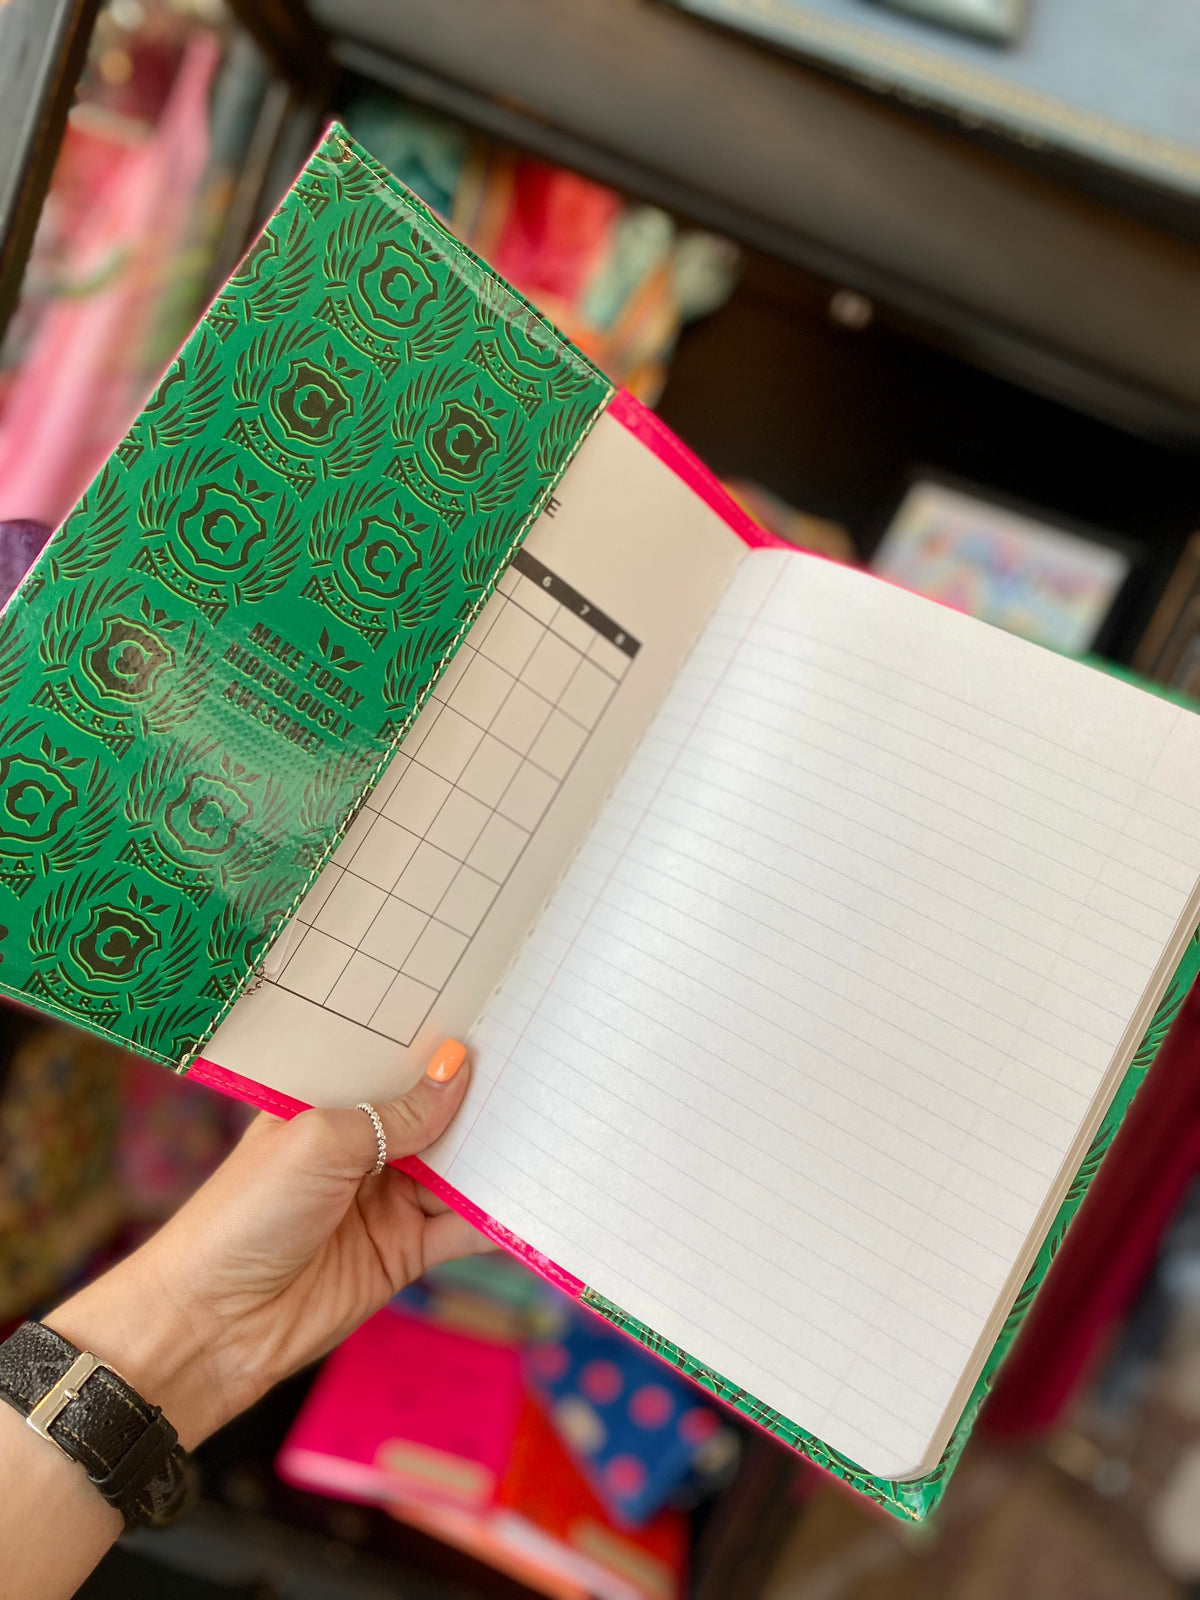 C
M.T.R.A.
C
M.T.R.A.
M.T.R.A.
C
M.T.R.A.
C
M.T.R.A.
C
M.T.R.A.
C
M.T.R.A.
MAKE TODAY
RIDICULOUSLY
AWESOME!
C
M.T.R.A.
C
M.T.R.A.
C
M.T.R.A.
E
6 7 8